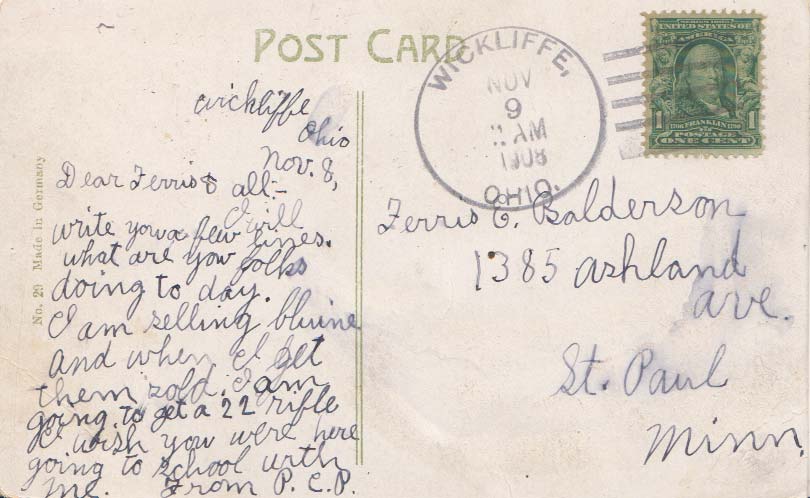 POST CARD
WICKLIFFE,
NOV
9
11 AM
1908
OHIO.
1
1706 FRANKLIN 1790
POSTAGE
ONE CENT
1
No. 29 Made in Germany
Wickliffe
Ohio
Nov. 8,
Dear Ferris & all:-
I will
write you a few lines.
what are you folks
doing to day.
I am selling bluine
and when I get
them sold. I am
going to get a 22 rifle
I wish you were here
going to school with
me. From P. C. P.
Ferris E. Balderson
1385 Ashland
ave.
St. Paul
Minn.